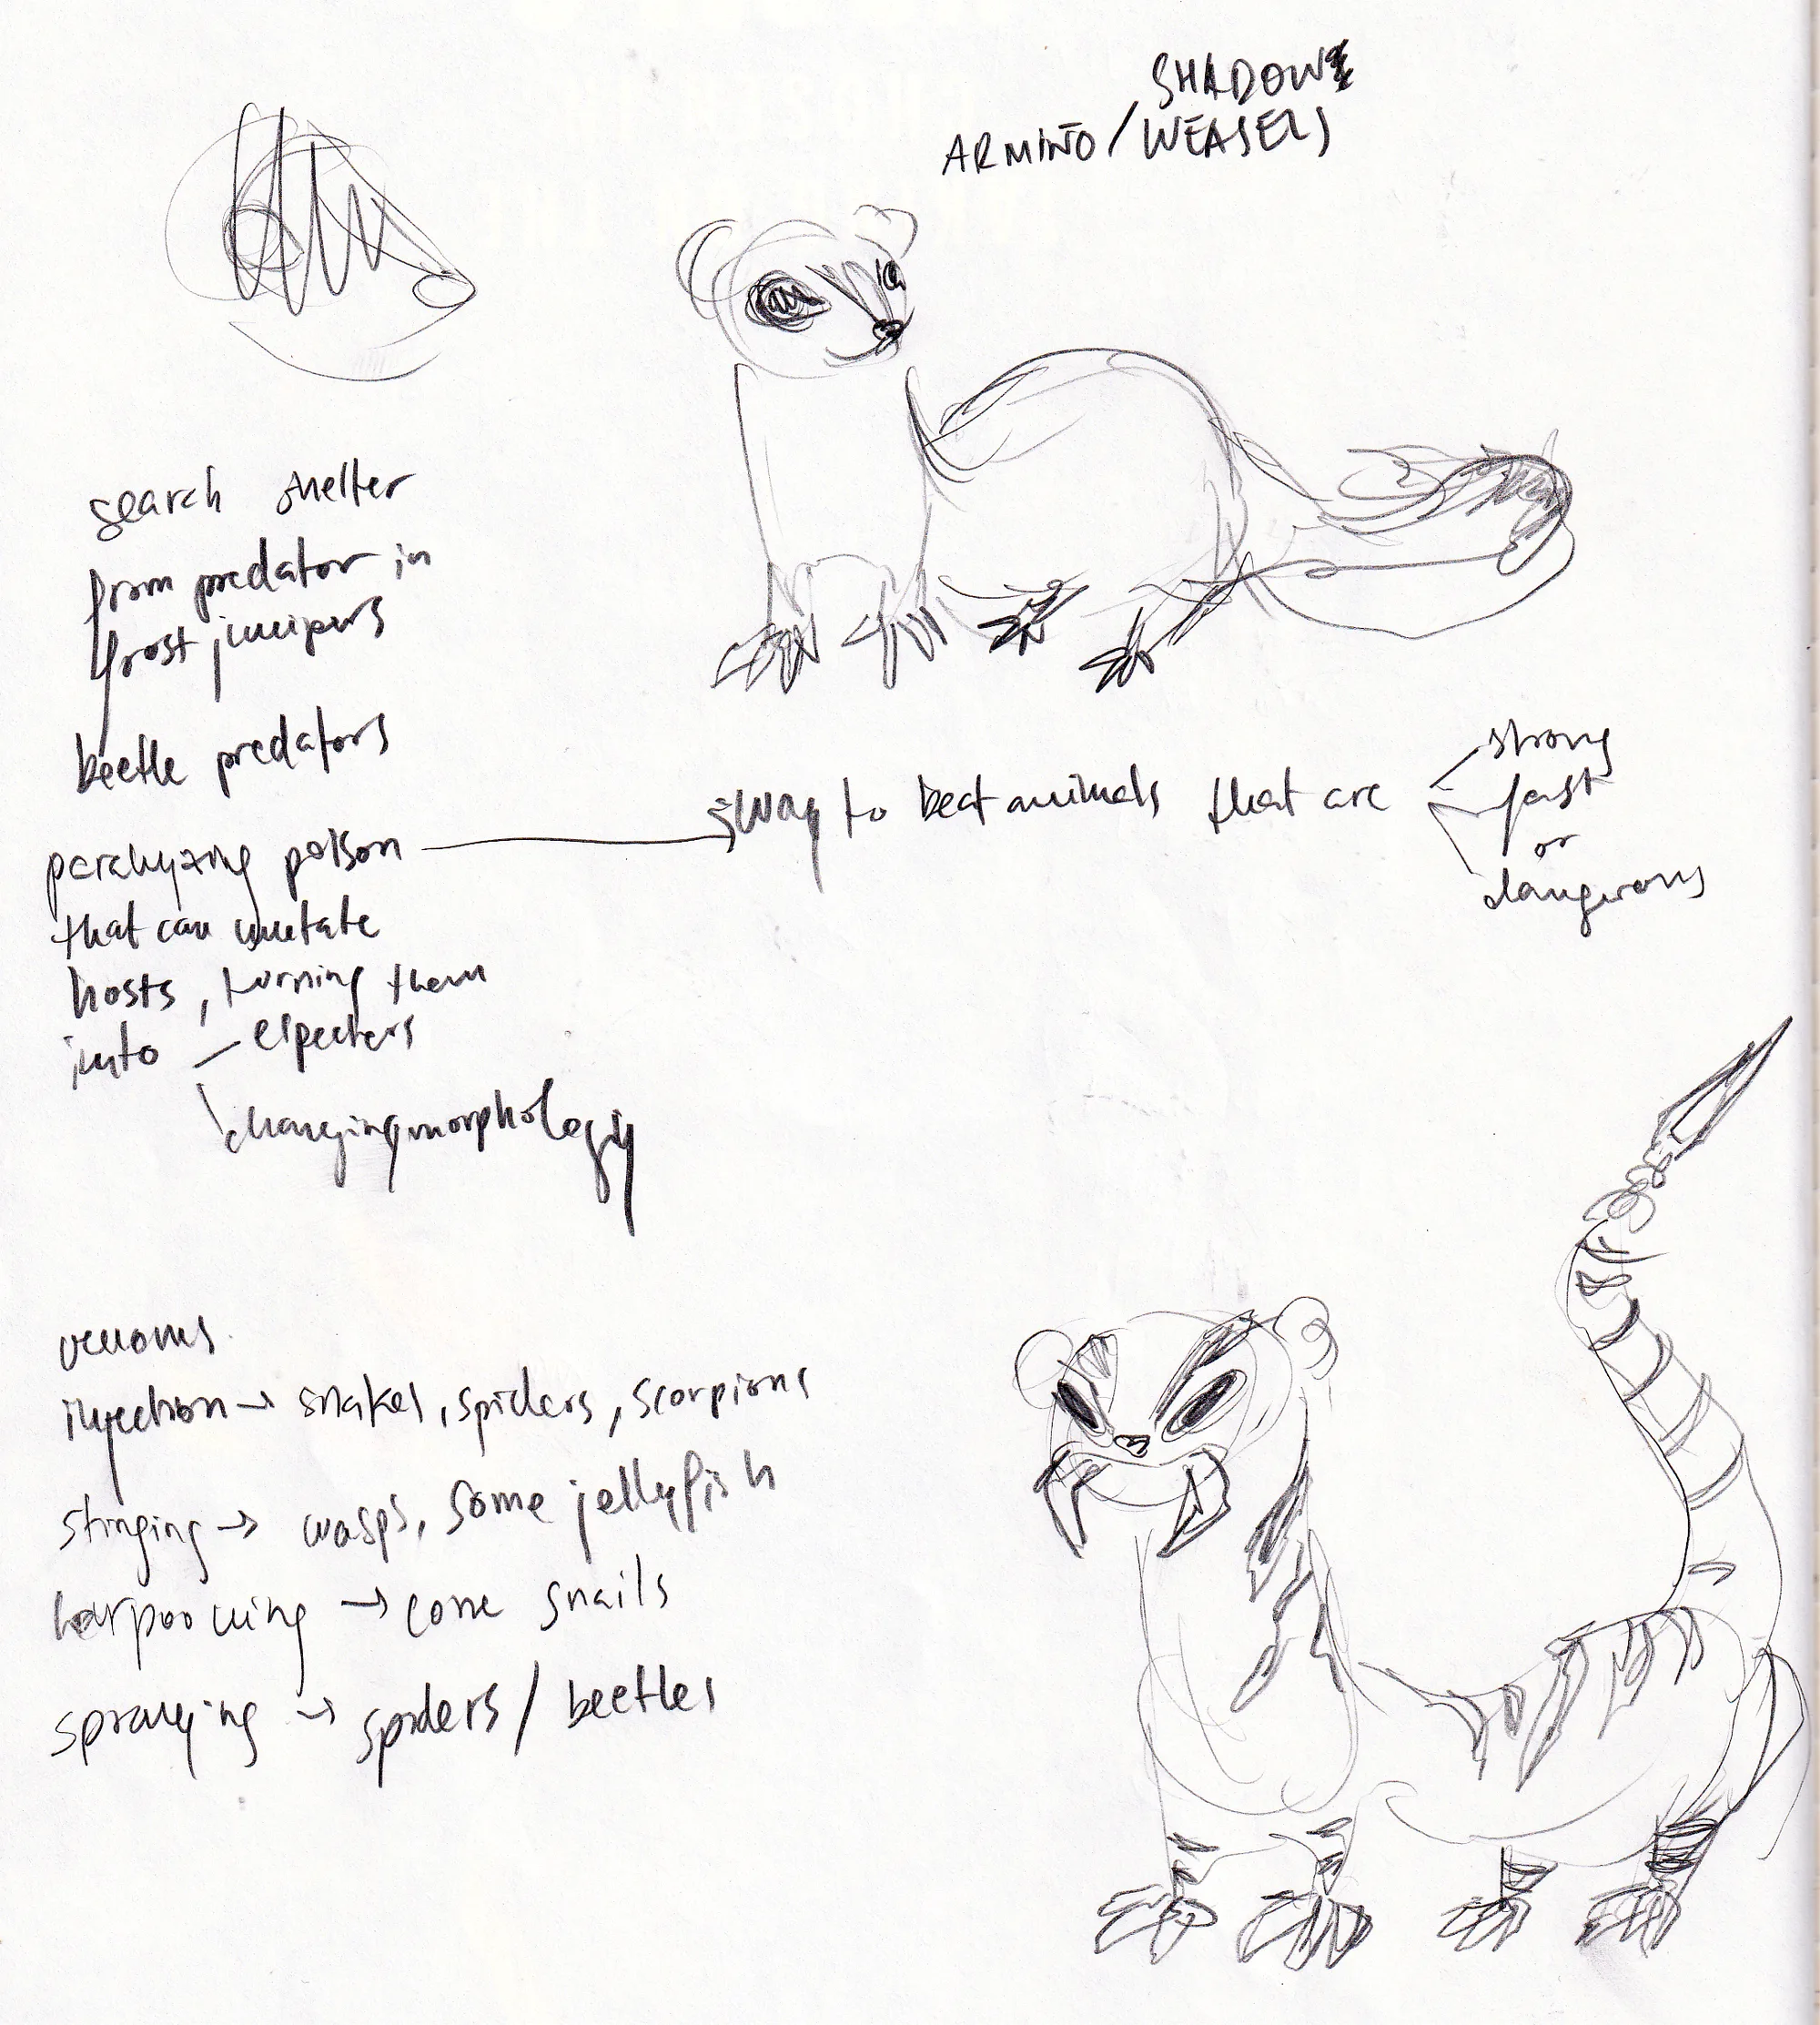 SHADOW
ARMIÑO / WEASELS
search shelter
from predator in
frost junipers
beetle predators
paralyzing poison
that can mutate
hosts, turning them
into
especters
changing morphology
way to beat animals that are
strong
fast
or
dangerous
venoms
injection → snakes, spiders, scorpions
stinging → wasps, some jellyfish
harpooning → cone snails
spraying → spiders / beetles